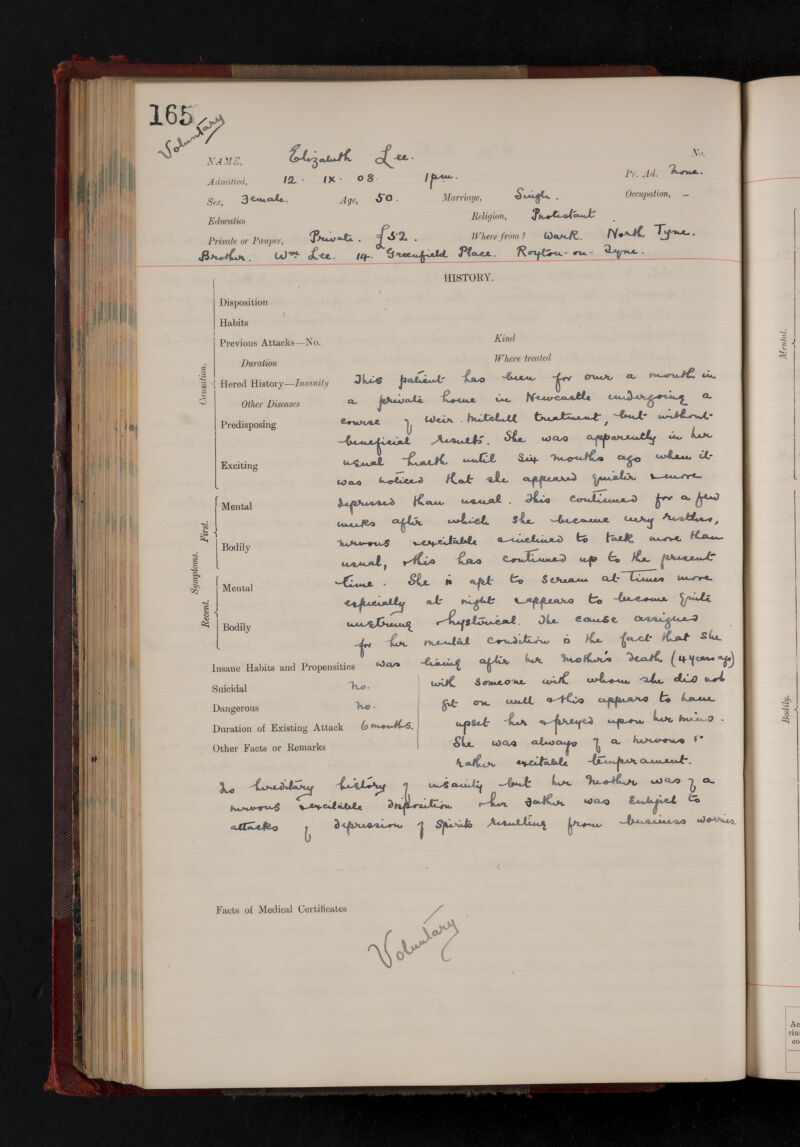 165
Voluntary
NAME, Elizabeth Lee. No.
Admitted, 12. IX. 08. 1pm. Pr. Ad. None.
Sex, Female. Age, 50. Marriage, Single. Occupation, –
Education Religion, Protestant.
Private or Pauper, Private. £52. Where from? Wark. North Tyne.
Brother. Wm Lee. 14. Greenfield Place. Ryton-on-Tyne.
HISTORY.
Disposition
Habits
Previous Attacks—No. Kind
Duration Where treated
Causation.
Hered History—Insanity This patient has been for over a month in
Other Diseases a private home in Newcastle undergoing a
Predisposing course of Weir. Mitchell treatment, but without
beneficial results. She was apparently in her
Exciting usual health until six months ago when it
was noticed that she appeared quieter & more
Symptoms.
First.
Mental depressed than usual. This continued for a few
weeks after which she became very restless,
Bodily nervous & excitable & inclined to talk more than
usual, & this has continued up to the present
Recent.
Mental time. She is apt to scream at times more
especially at night & appears to become quite
Bodily unstrung & hysterical. The cause assigned
for her mental condition is the fact that she
Insane Habits and Propensities was living after her mother's death (4 years ago)
Suicidal no. with someone with whom she did not
Dangerous no. get on well & this appears to have
Duration of Existing Attack 6 months. upset her & preyed upon her mind.
Other Facts or Remarks She was always of a nervous &
rather excitable temperament.
No hereditary history of insanity but her mother was of a
nervous & excitable disposition & her father was subject to
attacks of depression of spirits resulting from business worries.
Facts of Medical Certificates
Voluntary
Mental.
Bodily.